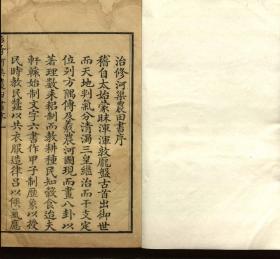 治修河渠農田書序
稽自太始蒙昧渾渾敦龐盤古首出御世
而天地判氣分清濁三皇繼治而干支定
位列方隅傳及羲農河圖現而畫八卦以
著理數耒耜制而教耕種民知穀食迨夫
軒轅始制文字六書作甲子制歷象以授
民時教民蠶以共衣服造律呂以候氣應